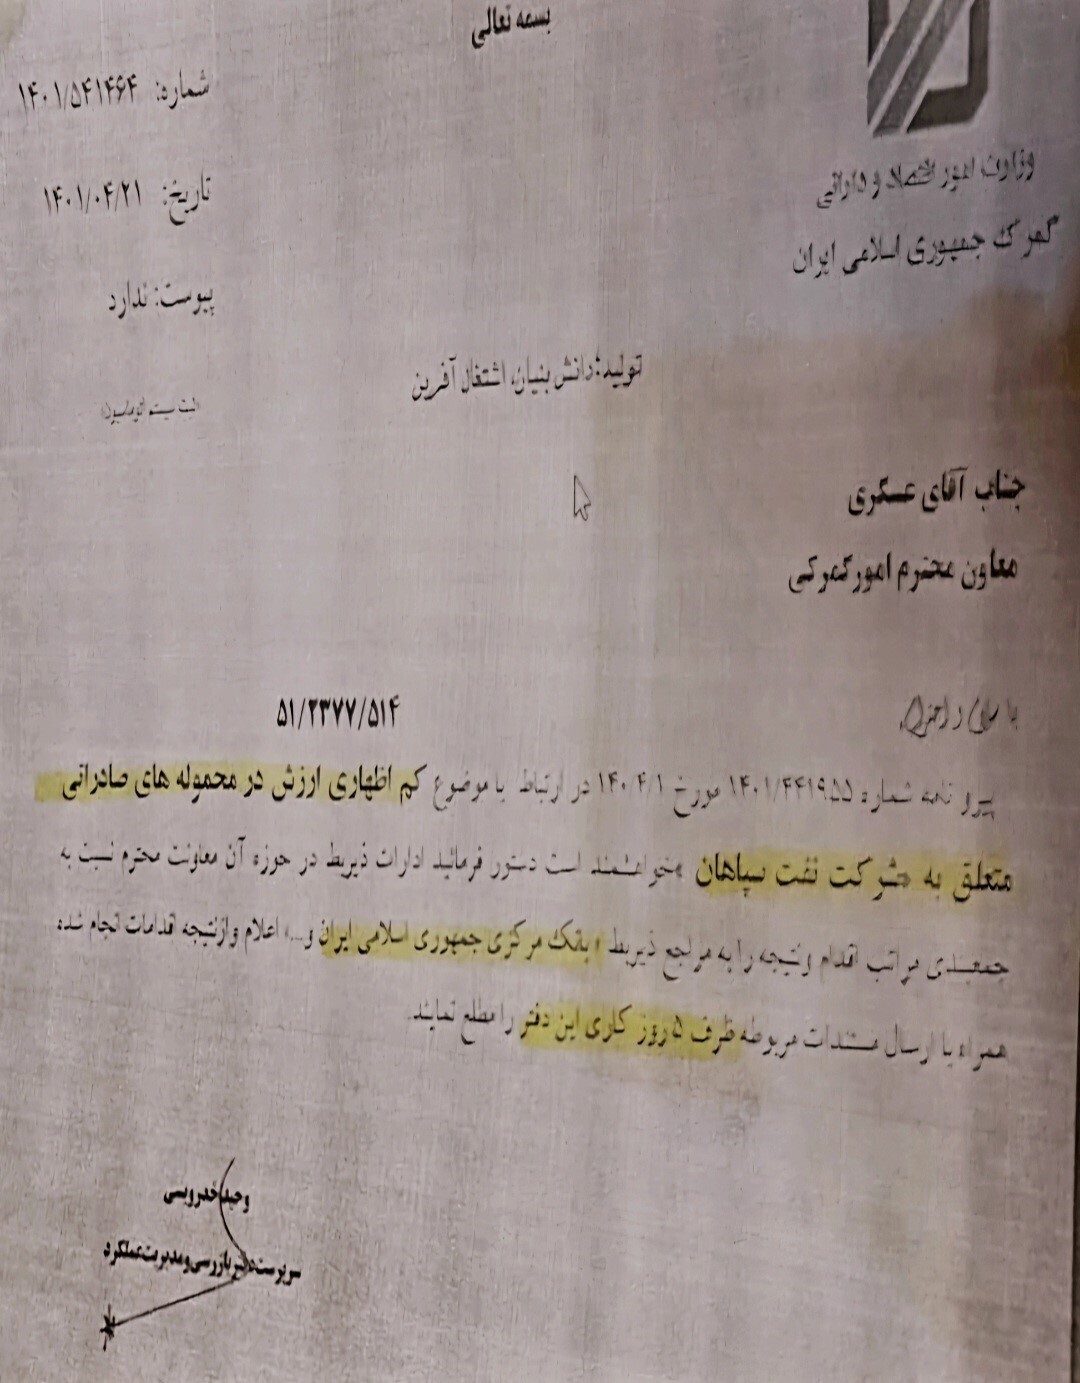 بسمه تعالی
شماره: ۱۴۰۱/۵۴۱۴۶۴
تاریخ: ۱۴۰۱/۰۴/۲۱
پیوست: ندارد
وزارت امور اقتصاد و دارائی
گمرک جمهوری اسلامی ایران
تولید؛ دانش بنیان، اشتغال آفرین
جناب آقای عسکری
معاون محترم امور گمرکی
با سلام و احترام
۵۱/۲۳۷۷/۵۱۴
پیرو نامه شماره ۱۴۰۱/۴۴۱۹۵۵ مورخ ۱۴۰/۴/۱ در ارتباط با موضوع کم اظهاری ارزش در محموله های صادراتی
متعلق به «شرکت نفت سپاهان» خواهشمند است دستور فرمائید ادارات ذیربط در حوزه آن معاونت محترم نسبت به
جمعبندی مراتب اقدام و نتیجه را به مراجع ذیربط «بانک مرکزی جمهوری اسلامی ایران و...» اعلام و از نتیجه اقدامات انجام شده
همراه با ارسال مستندات مربوطه ظرف ۵ روز کاری این دفتر را مطلع نمایند.
وحید خدرویسی
سرپرست دفتر بازرسی و مدیریت عملکرد